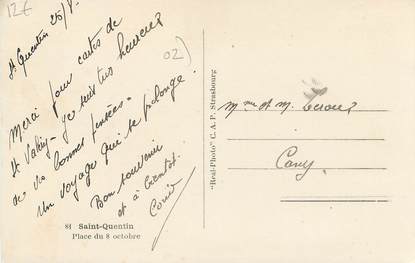 12€
St Quentin 25/8.
02)
Merci pour cartes de
St Valéry - je suis très heureux
de vos bonnes pensées -
Un voyage qui se prolonge.
Bon souvenir
et à bientôt.
"Real-Photo" C. A. P. Strasbourg
Mme et M.
Cany
81 Saint-Quentin
Place du 8 octobre